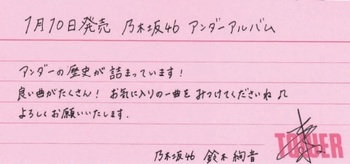 1月10日発売 乃木坂46 アンダーアルバム
アンダーの歴史が詰まっています!
良い曲がたくさん! お気に入りの一曲をみつけてくださいね♫
よろしくお願いいたします.
乃木坂46 鈴木絢音
TOWER